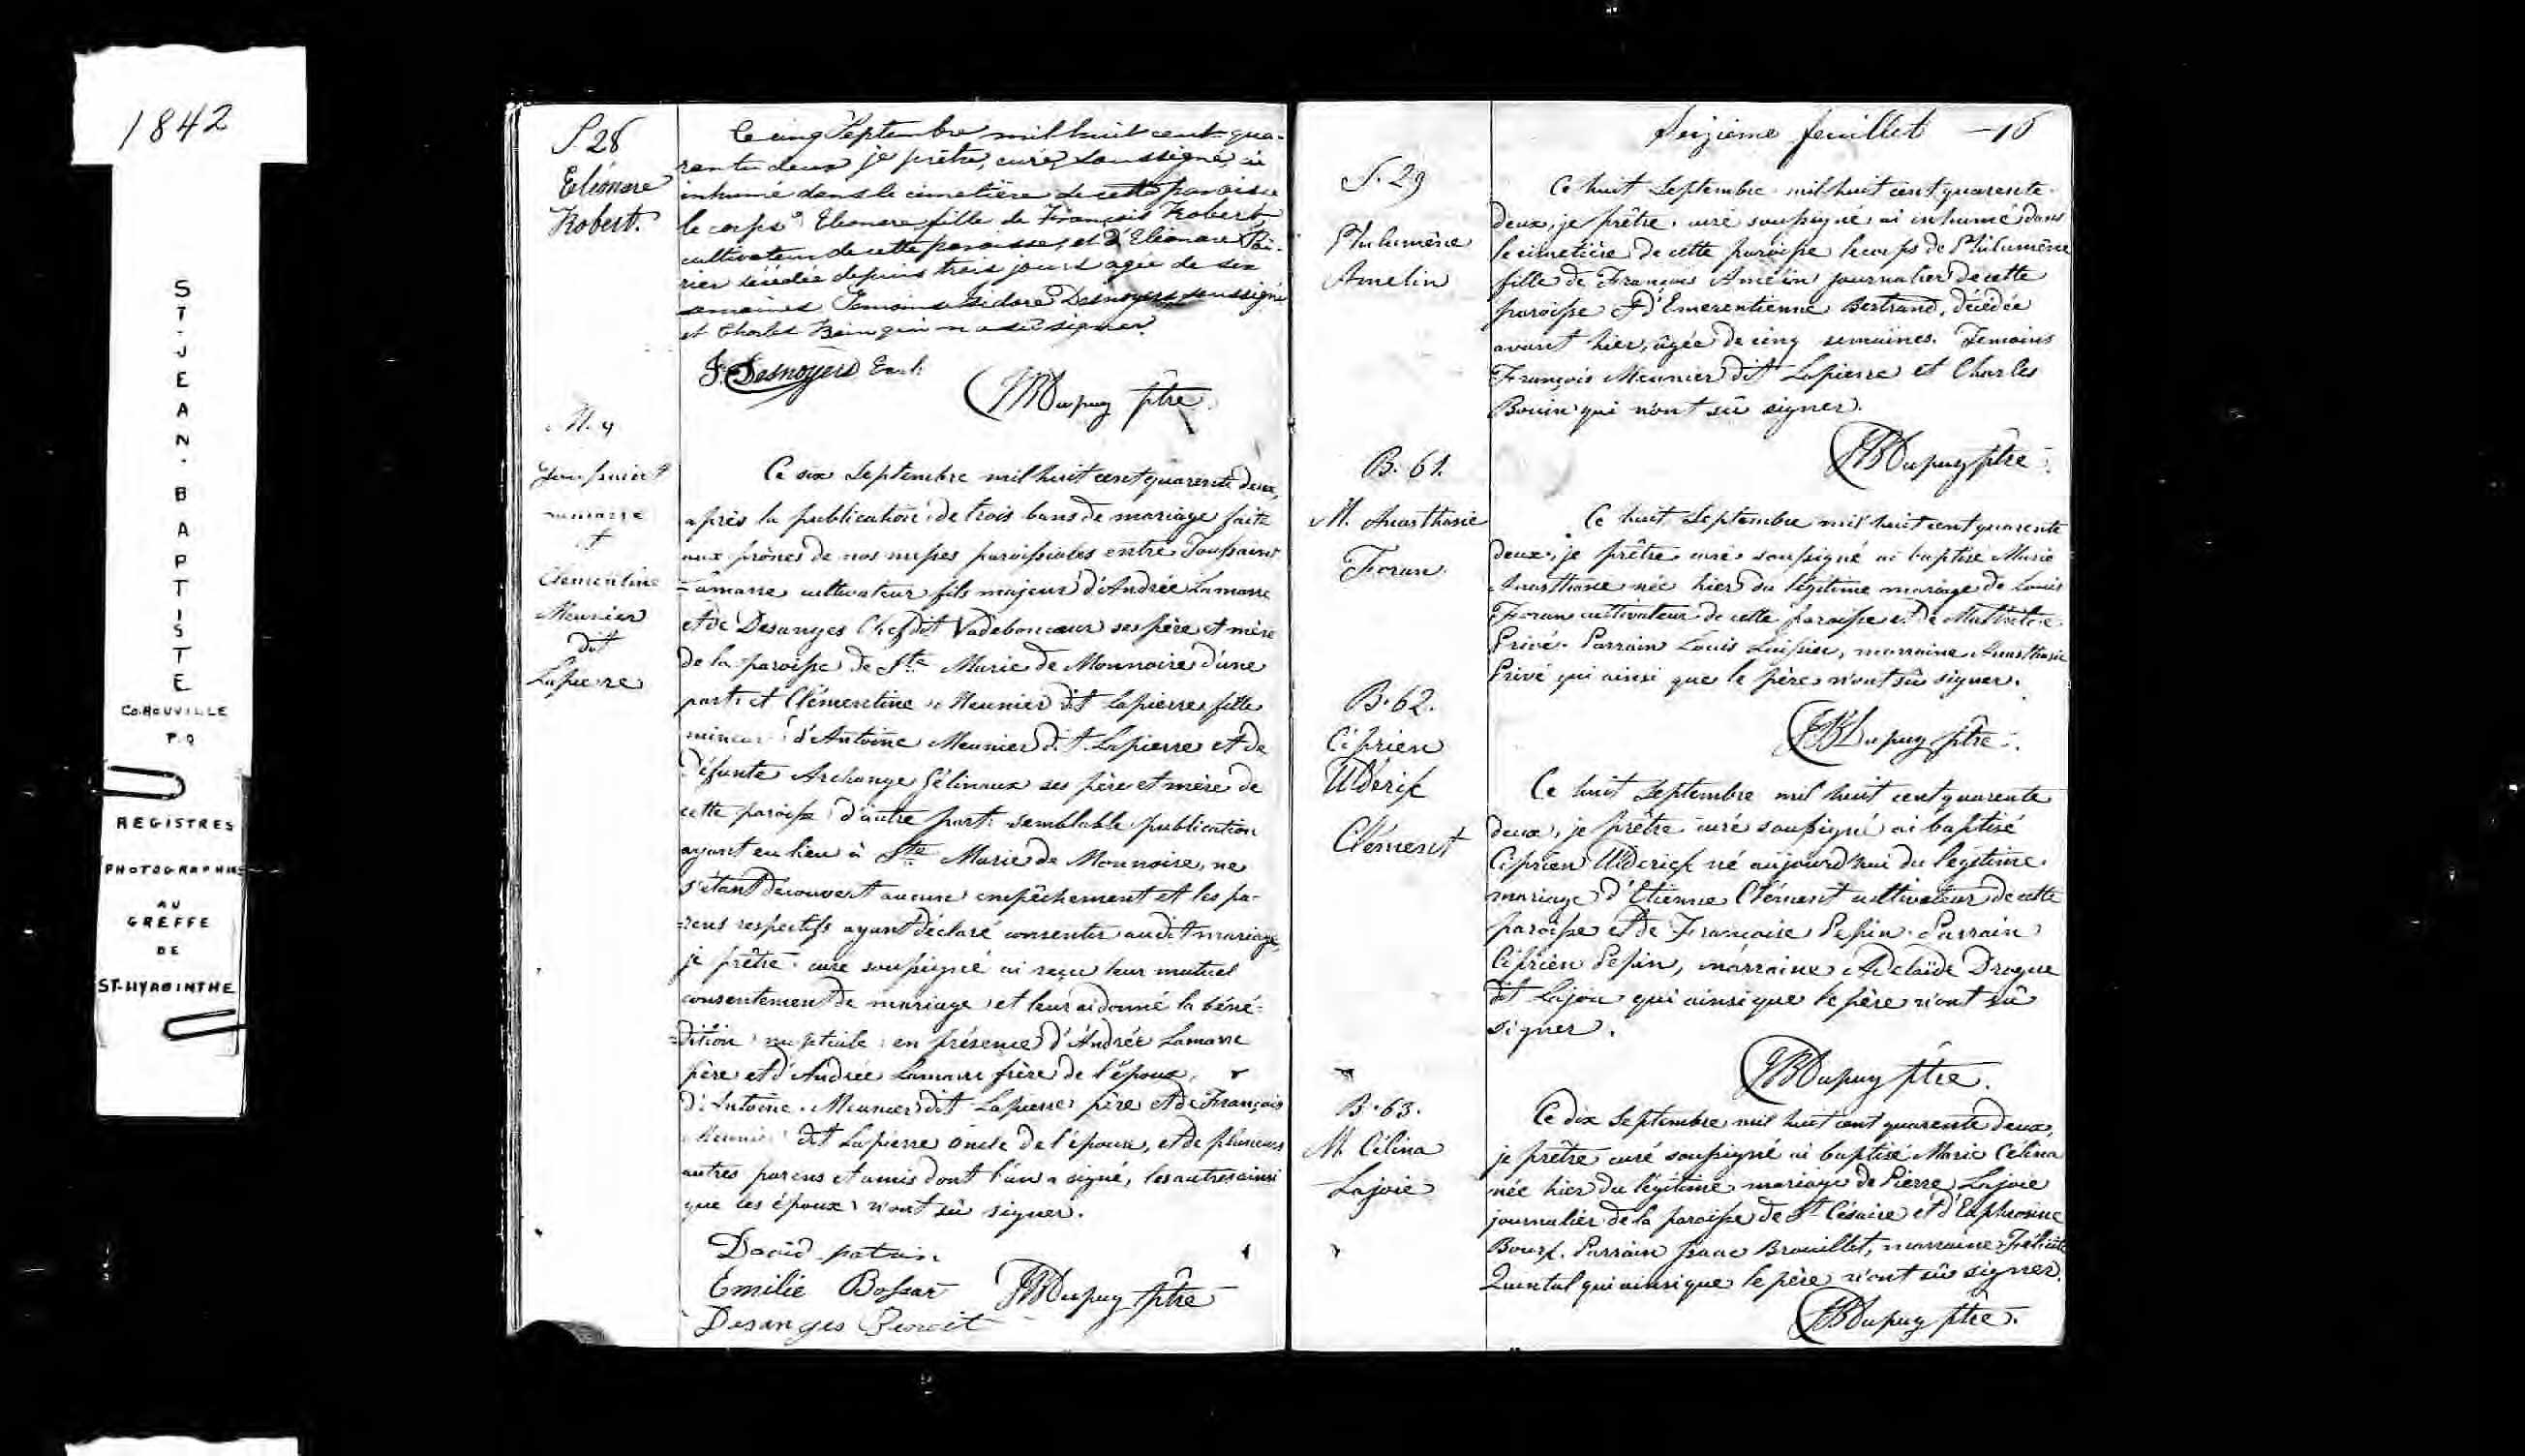 1842
ST-JEAN-BAPTISTE
Co. ROUVILLE
P.Q
REGISTRES
PHOTOGRAPHIÉS
AU
GREFFE
DE
ST-HYACINTHE
S. 28
Eléonore
Robert.
Ce cinq Septembre mil huit cent qua-
rante deux je prêtre, curé soussigné, ai
inhumé dans le cimetière de cette paroisse
le corps d'Eléonore fille de François Robert
cultivateur de cette paroisse, et d'Eléonore
décédée depuis trois jours agée de six
semaines Temoins Isidore Desnoyers soussigné
et Charles qui n'a su signer.
Is. Desnoyers Eccl.
JBDupuy ptre.
M. 9
Toussaint
Lamarre
et
Clementine
Meunier
dit
Lapierre
Ce six Septembre mil huit cent quarente deux,
après la publication de trois bans de mariage faite
aux prônes de nos messes paroissiales entre Toussaint
Lamarre cultivateur fils majeur d'Andrée Lamarre
et de Desanges Chef dit Vadeboncœur ses père et mère
de la paroisse de Ste Marie de Monnoire d'une
part; et Clémentine Meunier dit Lapierre fille
mineure d'Antoine Meunier dit Lapierre et de
défunte Archange Gélinaux ses père et mère de
cette paroisse d'autre part; semblable publication
ayant eu lieu à Ste Marie de Monnoire, ne
s'étant découvert aucun empêchement et les pa-
-rens respectifs ayant déclaré consentir audit mariage,
je prêtre curé soussigné ai reçu leur mutuel
consentement de mariage et leur ai donné la béné-
=dition nuptiale en présence d'Andrée Lamarre
père et d'Andrée Lamarre frère de l'époux,
d'Antoine Meunier dit Lapierre père et de François
Meunier dit Lapierre oncle de l'épouse, et de plusieurs
autres parens et amis dont l'un a signé, les autres ainsi
que les époux n'ont sû signer.
David
Emilie Bossar JBDupuy ptre
Desanges Benoit
Seizième feuillet -16
S. 29
Philumène
Amelin
Ce huit Septembre mil huit cent quarente
deux, je prêtre curé soussigné ai inhumé dans
le cimetière de cette paroisse le corps de Philumène
fille de François Amelin journalier de cette
paroisse et d'Emerentienne Bertrand, décédée
avant hier, âgée de cinq semaines. Temoins
François Meunier dit Lapierre et Charles
Bouin qui n'ont sû signer.
JBDupuy ptre.
B. 61.
M. Anasthasie
Foran
Ce huit Septembre mil huit cent quarente
deux, je prêtre curé soussigné ai baptisé Marie
Anasthasie née hier du légitime mariage de Louis
Foran cultivateur de cette paroisse et de Mathilde
Privé. Parrain Louis, marraine Anasthasie
Privé qui ainsi que le père n'ont sû signer.
JBDupuy ptre.
B. 62.
Ciprien
Ulderic
Clément
Ce huit Septembre mil huit cent quarente
deux, je prêtre curé soussigné ai baptisé
Ciprien Ulderic né aujourd'hui du légitime
mariage d'Etienne Clément cultivateur de cette
paroisse et de Francoise Pepin. Parrain
Ciprien Pepin, marraine Adelaïde Drogue
dit Lajoie qui ainsi que le père n'ont sû
signer.
JBDupuy ptre.
B. 63.
M. Célina
Lajoie
Ce dix Septembre mil huit cent quarente deux,
je prêtre curé soussigné ai baptisé Marie Célina
née hier du légitime mariage de Pierre Lajoie
journalier de la paroisse de St Césaire et d'Euphrosine
Parrain Isaac Brouillet, marraine Félicité
Quintal qui ainsi que le père n'ont sû signer.
JBDupuy ptre.